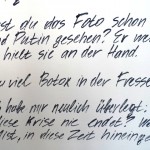 st du das Foto schon
d Putin gesehen? Er we
hielt sie an der Hand.
u viel Botox in der Fresse
hab mir neulich überlegt:
diese Krise nie endet? W
ist, in diese Zeit hineinge